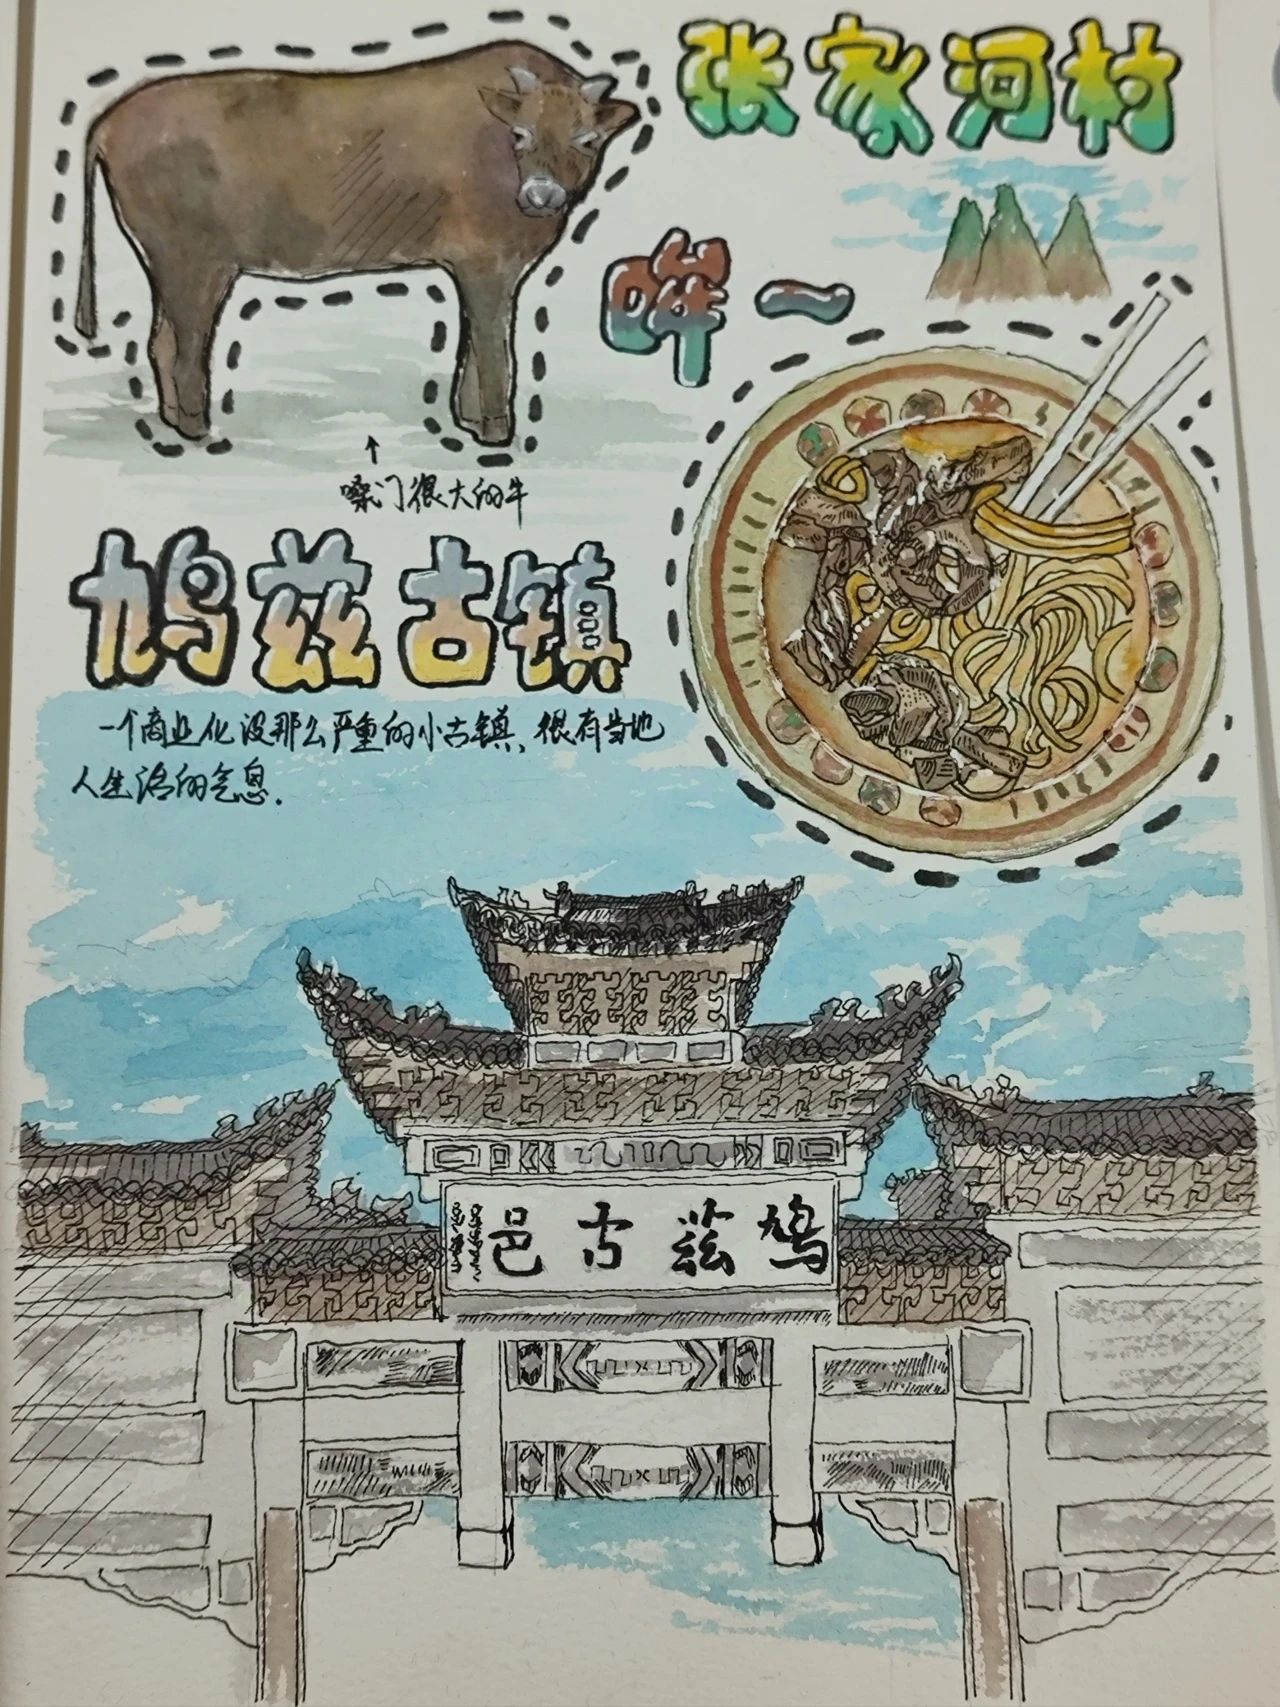 张家河村
哞一
嗓门很大的牛
鸠兹古镇
一个商业化没那么严重的小古镇，很有当地
人生活的气息.
鸠兹古邑